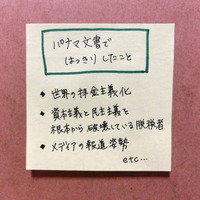 パナマ文書で
はっきりしたこと
◆ 世界の拝金主義化
◆ 資本主義と民主主義を
根本から破壊している脱税者
◆ メディアの報道姿勢
etc...